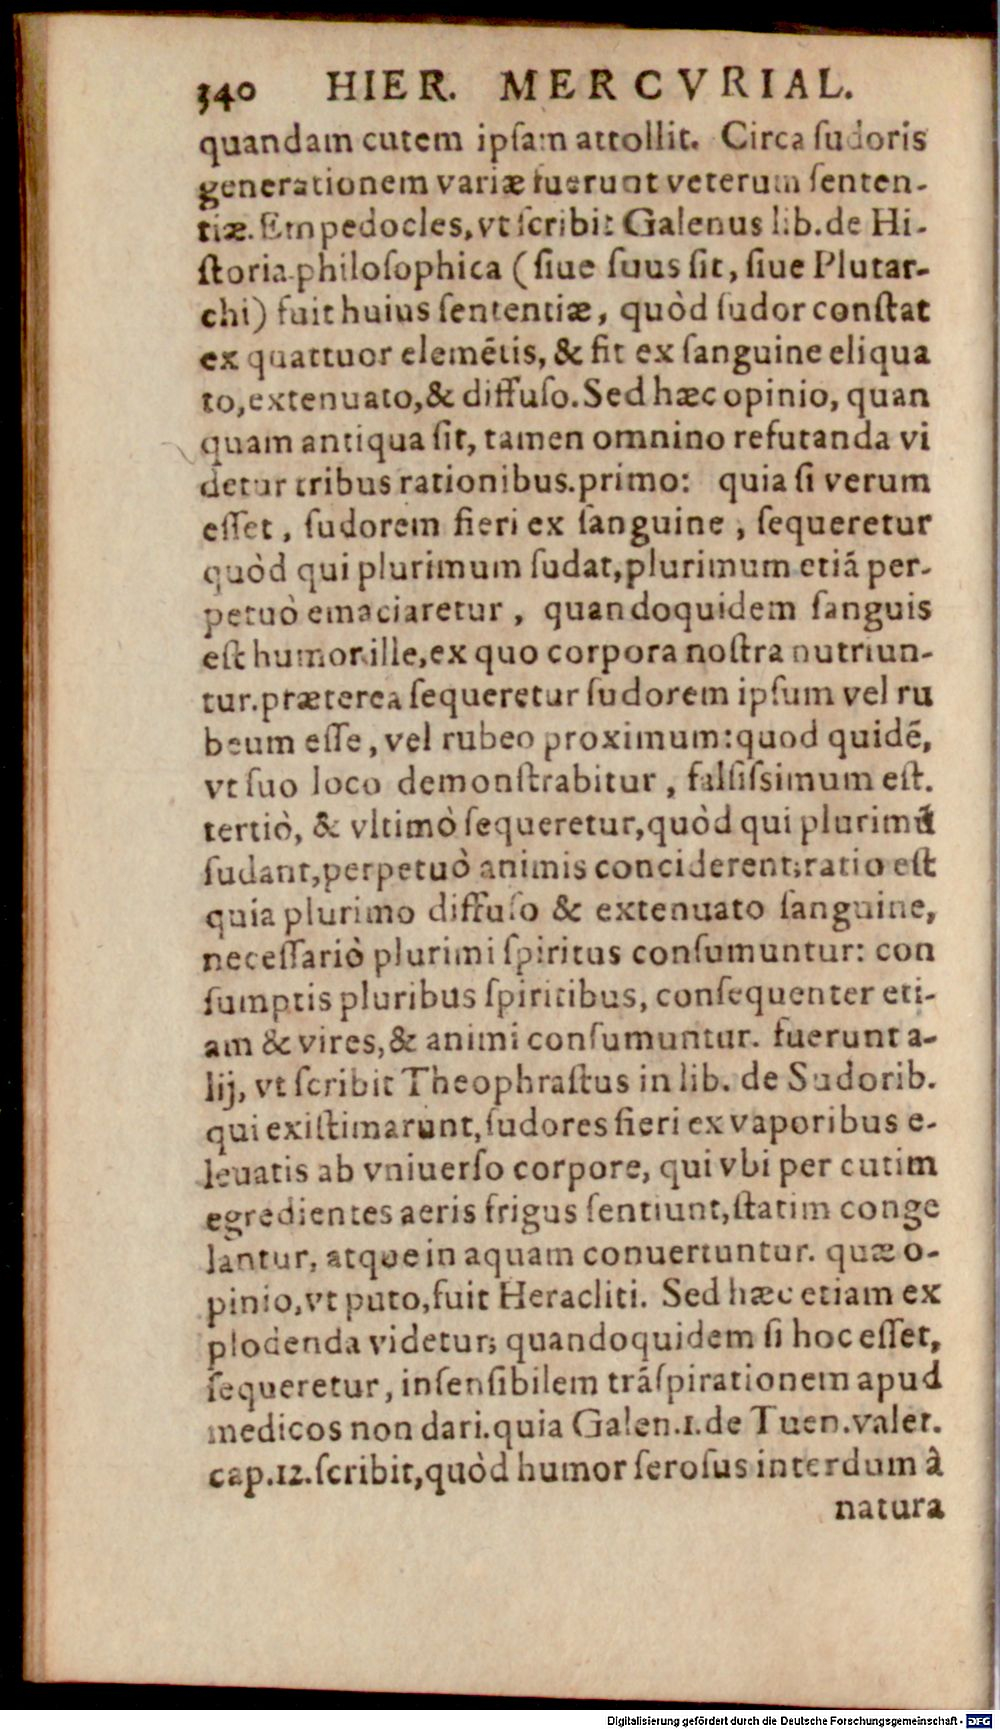 340 HIER. MERCVRIAL.
quandam cutem ipſam attollit. Circa ſudoris
generationem variæ fuerunt veterum ſenten-
tiæ. Empedocles, vt ſcribit Galenus lib. de Hi-
ſtoria philoſophica (ſiue ſuus ſit, ſiue Plutar-
chi) fuit huius ſententiæ, quòd ſudor conſtat
ex quattuor elemētis, & fit ex ſanguine eliqua
to, extenuato, & diffuſo. Sed hæc opinio, quan
quam antiqua ſit, tamen omnino refutanda vi
detur tribus rationibus. primo: quia ſi verum
eſſet, ſudorem fieri ex ſanguine, ſequeretur
quòd qui plurimum ſudat, plurimum etiā per-
petuò emaciaretur, quandoquidem ſanguis
eſt humor ille, ex quo corpora noſtra nutriun-
tur. præterea ſequeretur ſudorem ipſum vel ru
beum eſſe, vel rubeo proximum: quod quidē,
vt ſuo loco demonſtrabitur, falſiſsimum eſt.
tertiò, & vltimò ſequeretur, quòd qui plurimū
ſudant, perpetuò animis conciderent; ratio eſt
quia plurimo diffuſo & extenuato ſanguine,
neceſſariò plurimi ſpiritus conſumuntur: con
ſumptis pluribus ſpiritibus, conſequenter eti-
am & vires, & animi conſumuntur. fuerunt a-
lij, vt ſcribit Theophraſtus in lib. de Sudorib.
qui exiſtimarunt, ſudores fieri ex vaporibus e-
leuatis ab vniuerſo corpore, qui vbi per cutim
egredientes aeris frigus ſentiunt, ſtatim conge
lantur, atque in aquam conuertuntur. quæ o-
pinio, vt puto, fuit Heracliti. Sed hæc etiam ex
plodenda videtur; quandoquidem ſi hoc eſſet,
ſequeretur, inſenſibilem trāſpirationem apud
medicos non dari. quia Galen. 1. de Tuen. valet.
cap. 12. ſcribit, quòd humor ſeroſus interdum à
natura
Digitalisierung gefördert durch die Deutsche Forschungsgemeinschaft - DFG